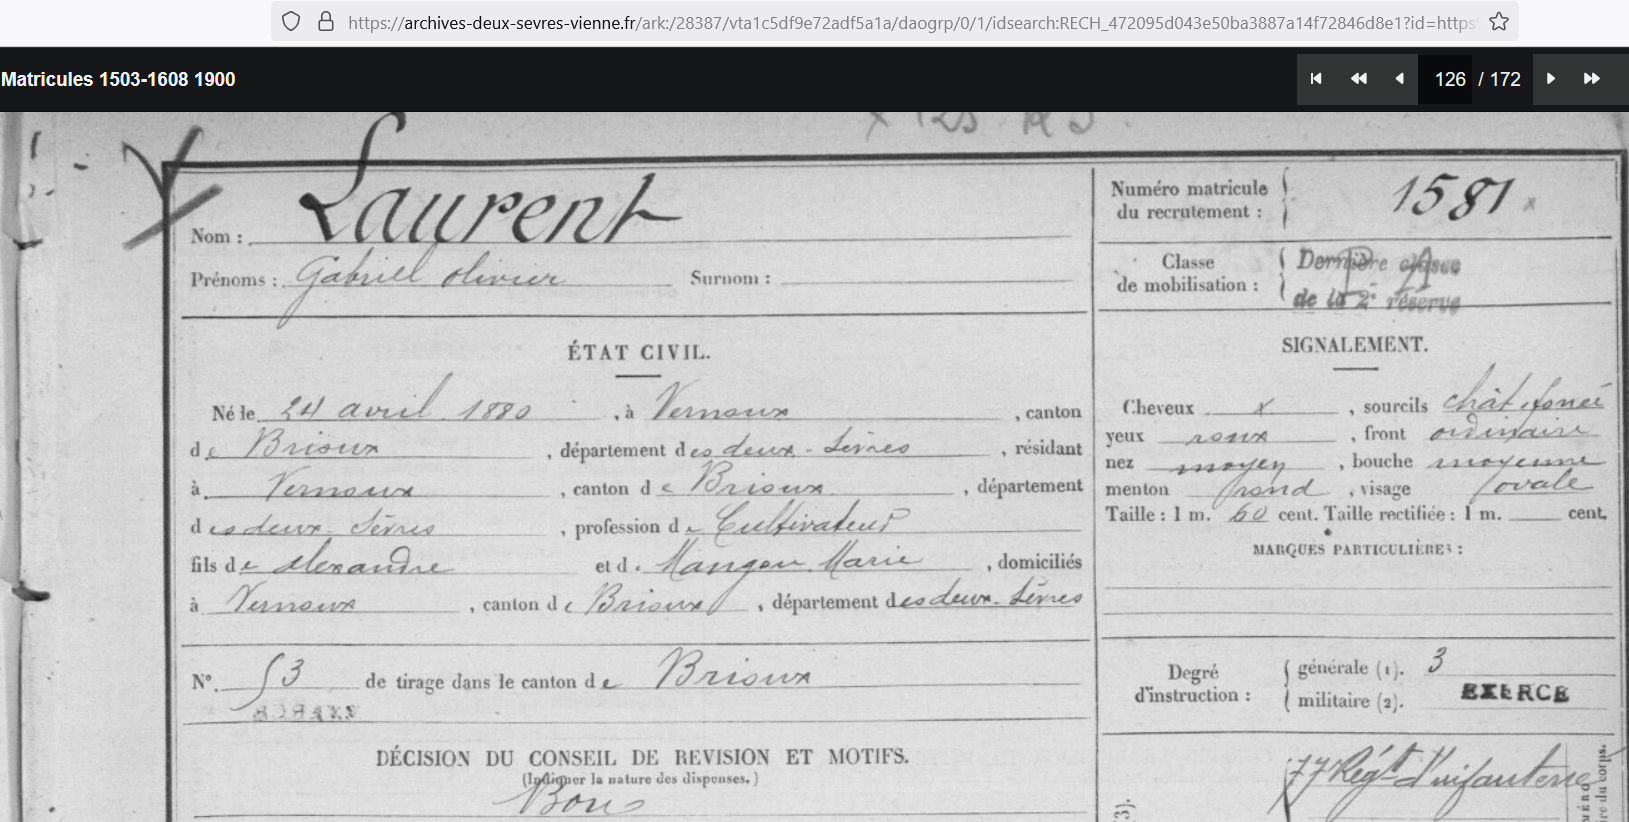 https://archives-deux-sevres-vienne.fr/ark:/28387/vta1c5df9e72adf5a1a/daogrp/0/1/idsearch:RECH_472095d043e50ba3887a14f72846d8e1?id=https
Matricules 1503-1608 1900
126 / 172
Nom : Laurent
Prénoms : Gabriel Olivier Surnom :
Numéro matricule du recrutement : 1581
Classe de mobilisation : Dernière classe de la 2e réserve
ÉTAT CIVIL.
Né le 24 avril 1880, à Vernoux, canton
de Brioux, département des deux-Sèvres, résidant
à Vernoux, canton de Brioux, département
des deux-Sèvres, profession de Cultivateur
fils de Alexandre et d. Mangou Marie, domiciliés
à Vernoux, canton de Brioux, département des deux-Sèvres
No. 53 de tirage dans le canton de Brioux
EXERCE
DÉCISION DU CONSEIL DE REVISION ET MOTIFS.
(Indiquer la nature des dispenses.)
Bon
SIGNALEMENT.
Cheveux x, sourcils chât. foncé
yeux roux, front ordinaire
nez moyen, bouche moyenne
menton rond, visage ovale
Taille : 1 m. 60 cent. Taille rectifiée : 1 m. cent.
MARQUES PARTICULIÈRES :
Degré d'instruction : générale (1). 3
militaire (2). EXERCE
77 Régt d'infanterie
(3).
du corps.